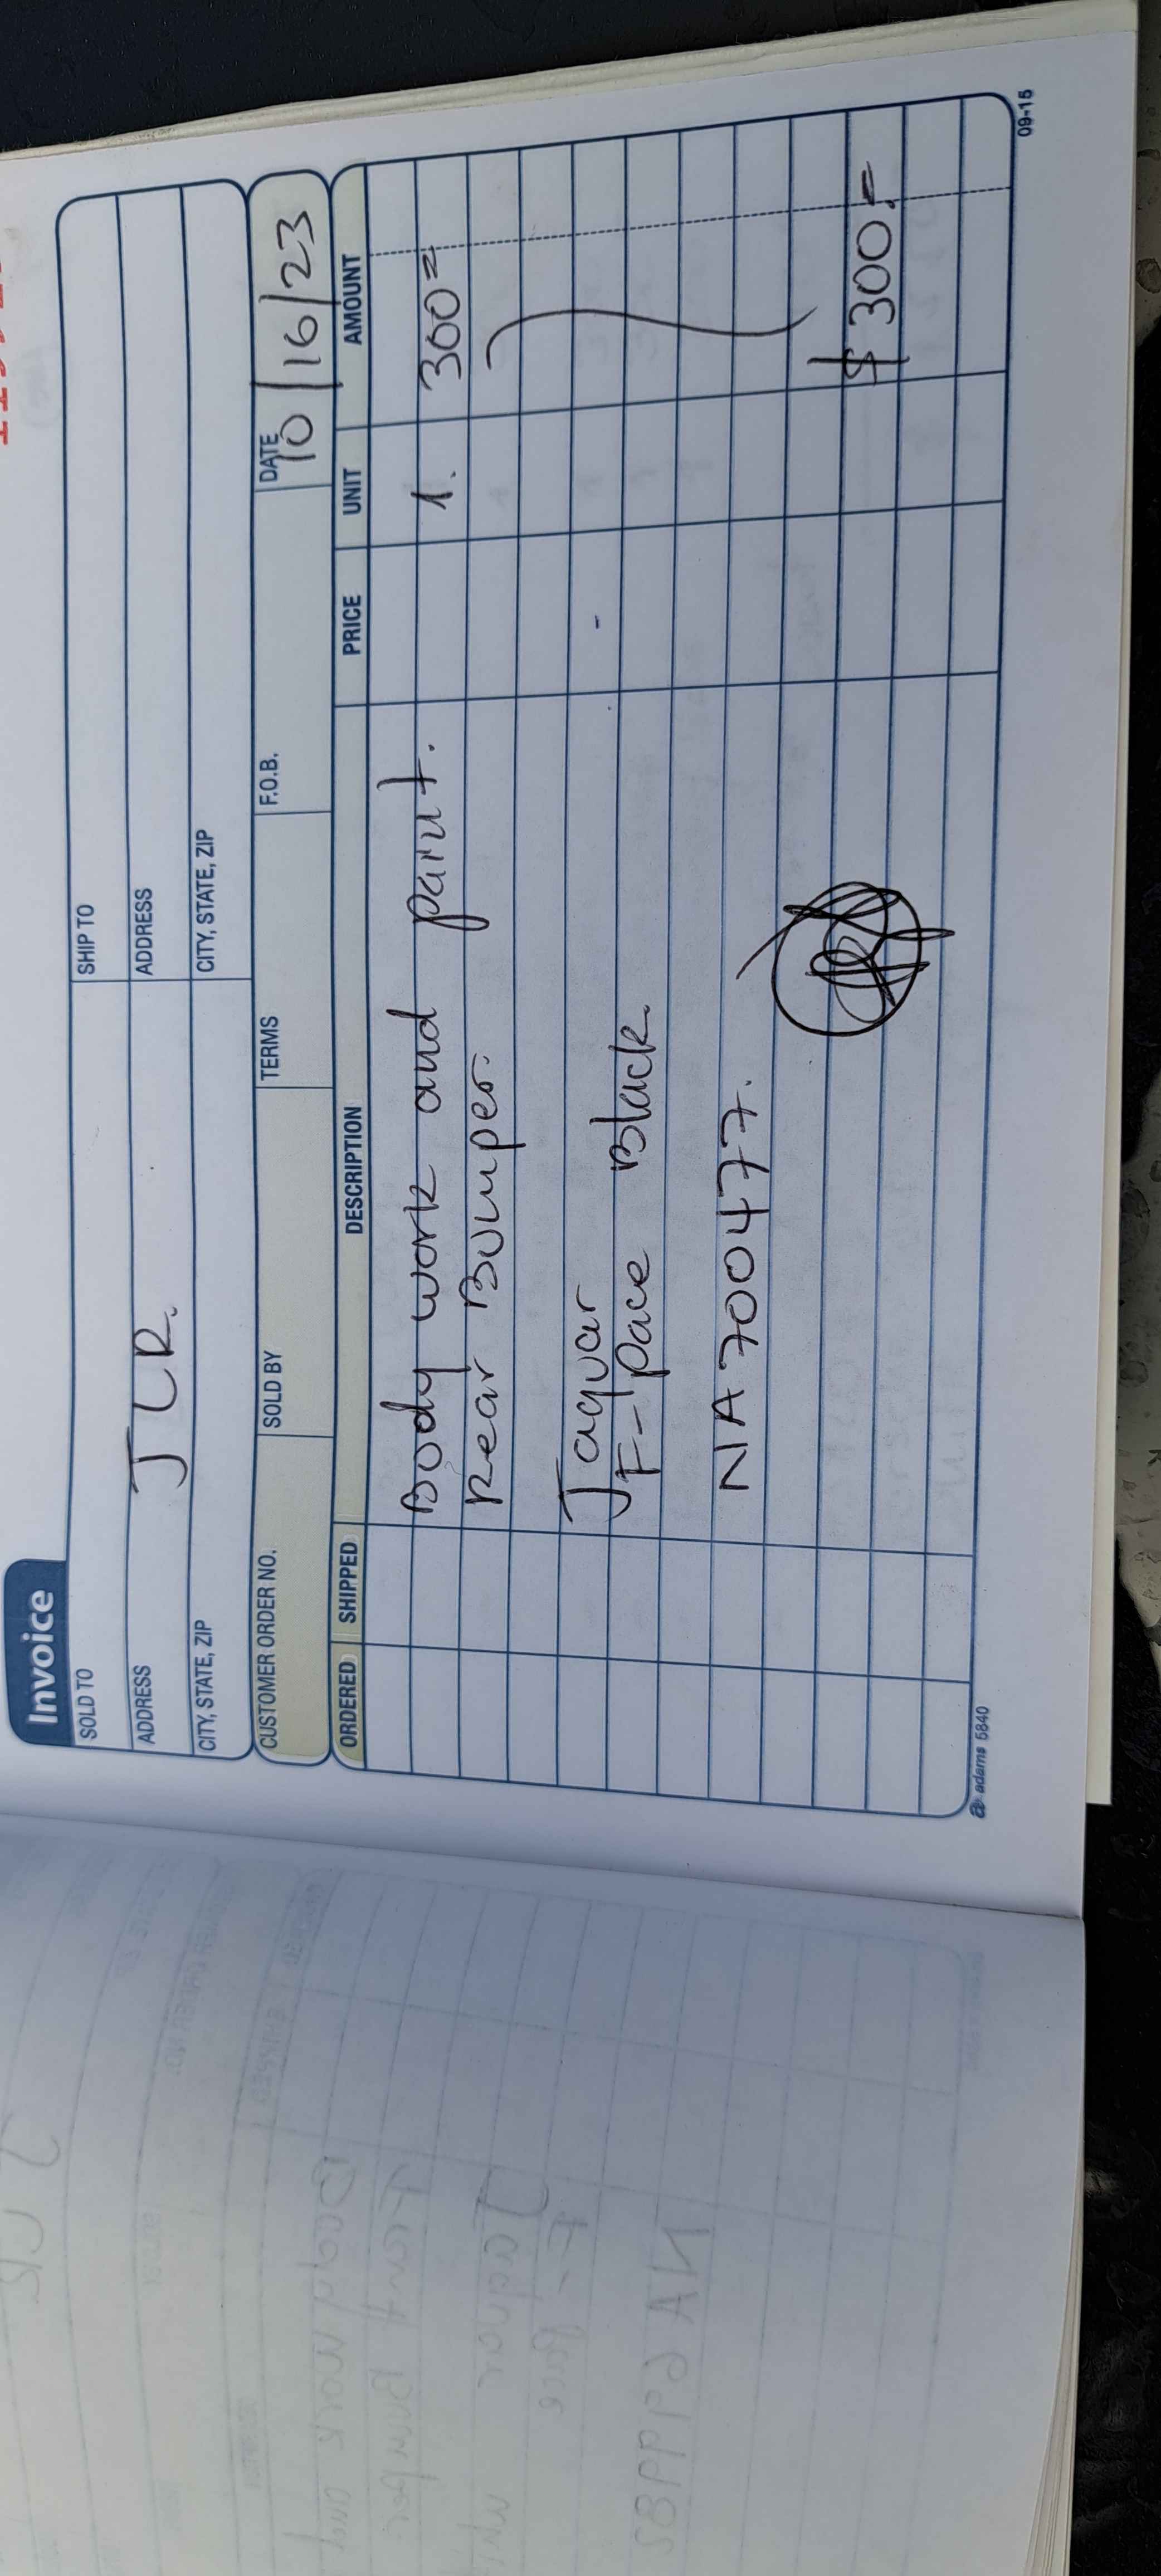 Invoice
SOLD TO
SHIP TO
ADDRESS
J L R.
ADDRESS
CITY, STATE, ZIP
CITY, STATE, ZIP
CUSTOMER ORDER NO. SOLD BY TERMS F.O.B. DATE
10/16/23
ORDERED SHIPPED DESCRIPTION PRICE UNIT AMOUNT
Body work and paint. 1. 300=
Rear Bumper.
Jaguar
F-Pace Black.
NA700477.
$ 300.=
adams 5840
09-15